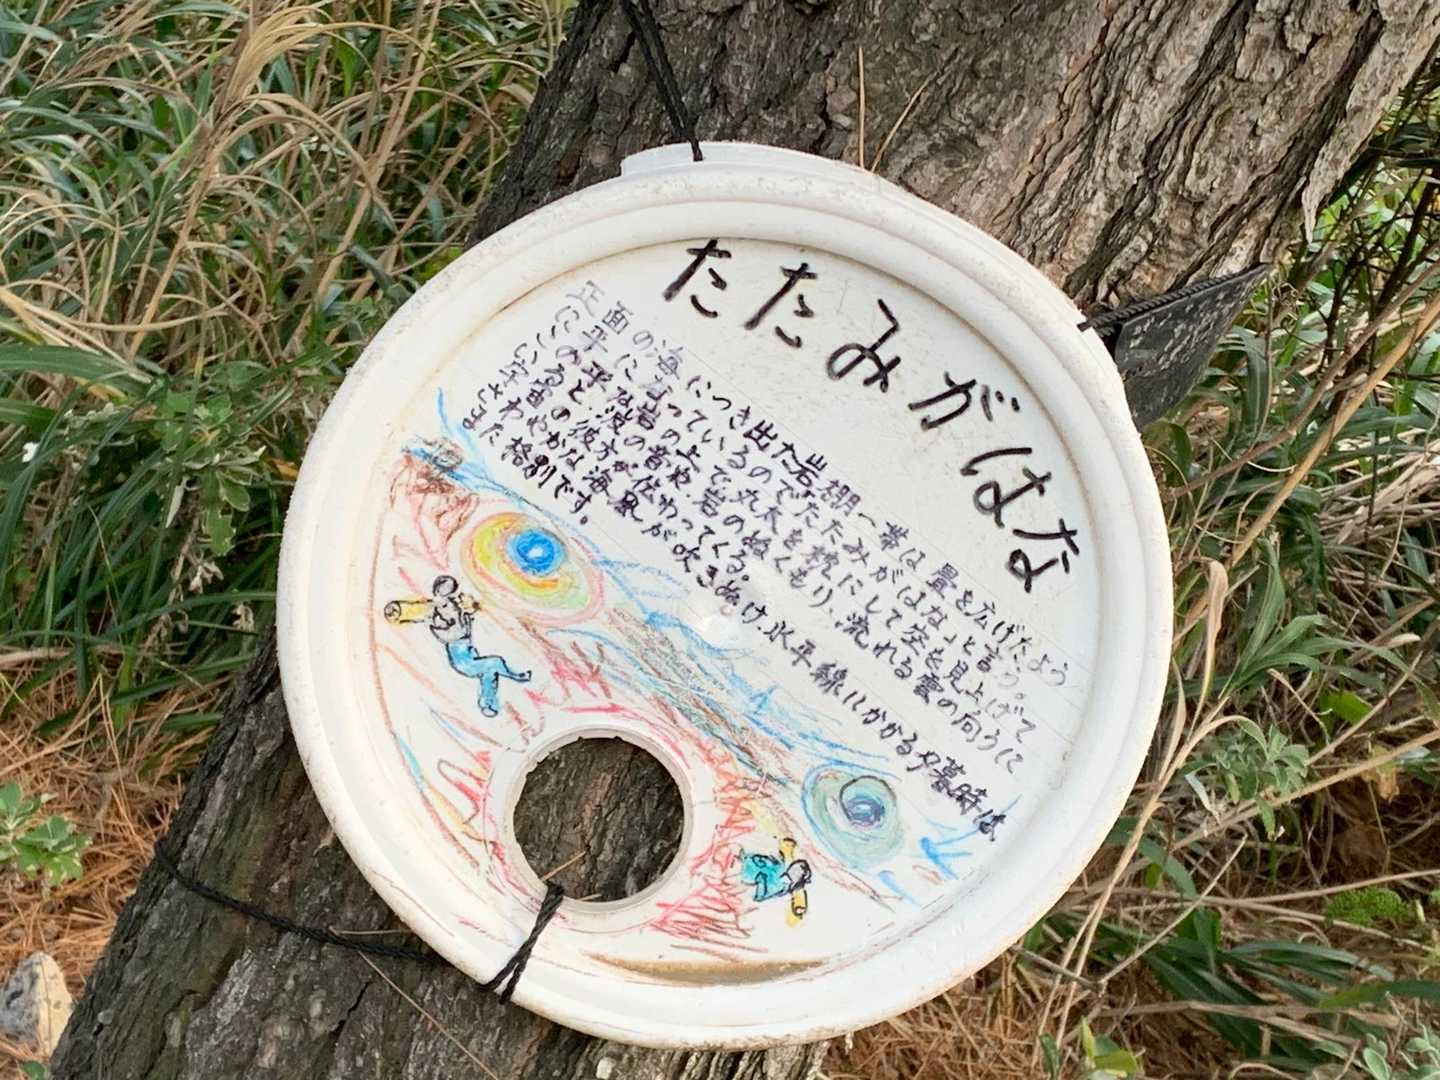 たたみがはな
正面の海につき出た岩棚一帯は畳を広げたよう
に平になっているのでたたみがはな」と言う。
この平な岩の上で丸太を枕にして空を見上げて
いると、波の音や、岩のぬくもり、流れる雲の向うに
宇宙の彼方が伝わってくる。
さわやかな海風が吹きぬけ、水平線にかかる夕暮時は
また格別です。